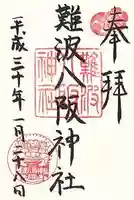 奉拝
難波八阪神社
平成三十年一月二十八日
難波
神社